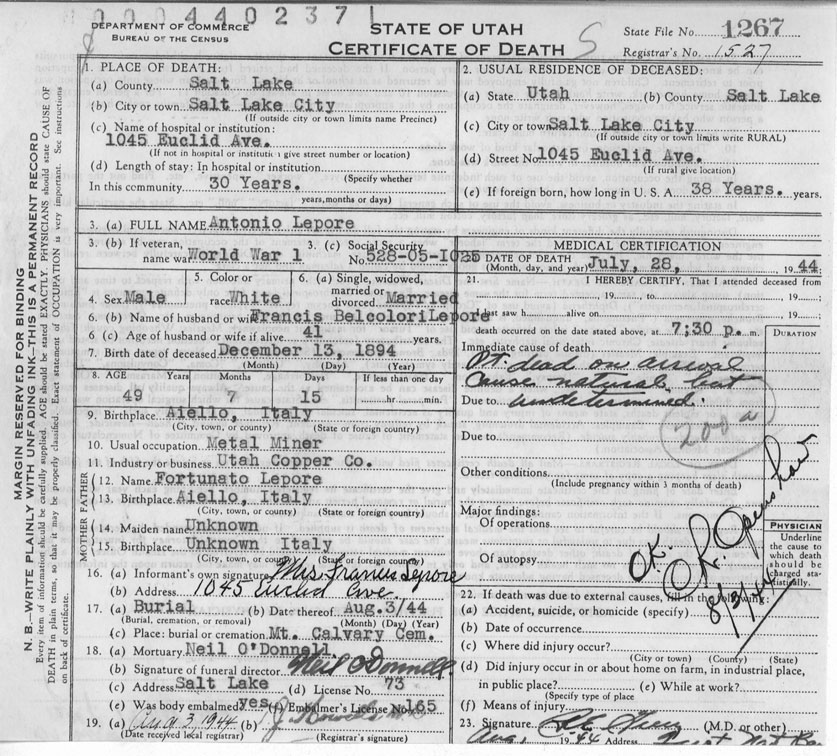 000440237
DEPARTMENT OF COMMERCE
BUREAU OF THE CENSUS
STATE OF UTAH
CERTIFICATE OF DEATH
State File No. 1267
Registrar's No. 1527
MARGIN RESERVED FOR BINDING
N. B.—WRITE PLAINLY WITH UNFADING INK—THIS IS A PERMANENT RECORD
Every item of information should be carefully supplied. AGE should be stated EXACTLY. PHYSICIANS should state CAUSE OF
DEATH in plain terms, so that it may be properly classified. Exact statement of OCCUPATION is very important. See instructions
on back of certificate.
1. PLACE OF DEATH:
(a) County Salt Lake
(b) City or town Salt Lake City
(If outside city or town limits name Precinct)
(c) Name of hospital or institution:
1045 Euclid Ave.
(If not in hospital or institution give street number or location)
(d) Length of stay: In hospital or institution
(Specify whether
In this community 30 Years.
years, months or days)
2. USUAL RESIDENCE OF DECEASED:
(a) State Utah (b) County Salt Lake
(c) City or town Salt Lake City
(If outside city or town limits write RURAL)
(d) Street No. 1045 Euclid Ave.
(If rural give location)
(e) If foreign born, how long in U. S. A. 38 Years. years.
3. (a) FULL NAME Antonio Lepore
3. (b) If veteran, name war World War 1 3. (c) Social Security No. 528-05-1025
4. Sex Male 5. Color or race White 6. (a) Single, widowed, married or divorced. Married
6. (b) Name of husband or wife Francis Belcolori Lepore
6. (c) Age of husband or wife if alive 41 years.
7. Birth date of deceased December 13, 1894
(Month) (Day) (Year)
8. AGE Years Months Days If less than one day
49 7 15 hr. min.
9. Birthplace Aiello, Italy
(City, town, or county) (State or foreign country)
10. Usual occupation Metal Miner
11. Industry or business Utah Copper Co.
FATHER
12. Name Fortunato Lepore
13. Birthplace Aiello, Italy
(City, town, or county) (State or foreign country)
MOTHER
14. Maiden name Unknown
15. Birthplace Unknown Italy
(City, town, or county) (State or foreign country)
16. (a) Informant's own signature Mrs. Francis Lepore
(b) Address 1045 Euclid Ave.
17. (a) Burial (b) Date thereof Aug. 3/44
(Burial, cremation, or removal) (Month) (Day) (Year)
(c) Place: burial or cremation Mt. Calvary Cem.
18. (a) Mortuary Neil O'Donnell
(b) Signature of funeral director Neil O'Donnell.
(c) Address Salt Lake (d) License No. 73
(e) Was body embalmed yes (f) Embalmer's License No. 165
19. (a) Aug 3, 1944 (b)
(Date received local registrar) (Registrar's signature)
MEDICAL CERTIFICATION
20. DATE OF DEATH
(Month, day, and year) July, 28, 1944
21. I HEREBY CERTIFY, That I attended deceased from
19 , to 19 ;
I last saw h alive on 19 ;
death occurred on the date stated above, at 7;30 p. m.
DURATION
Immediate cause of death
Pt. dead on arrival
cause natural, but
Due to undetermined.
200 a
Due to
Other conditions
(Include pregnancy within 3 months of death)
Major findings:
Of operations
Of autopsy
O.K.
8/3/44
PHYSICIAN
Underline
the cause to
which death
should be
charged sta-
tistically.
22. If death was due to external causes, fill in the following:
(a) Accident, suicide, or homicide (specify)
(b) Date of occurrence
(c) Where did injury occur?
(City or town) (County) (State)
(d) Did injury occur in or about home on farm, in industrial place,
in public place? (e) While at work?
(Specify type of place)
(f) Means of injury
23. Signature (M.D. or other)
Aug. 1944 Address